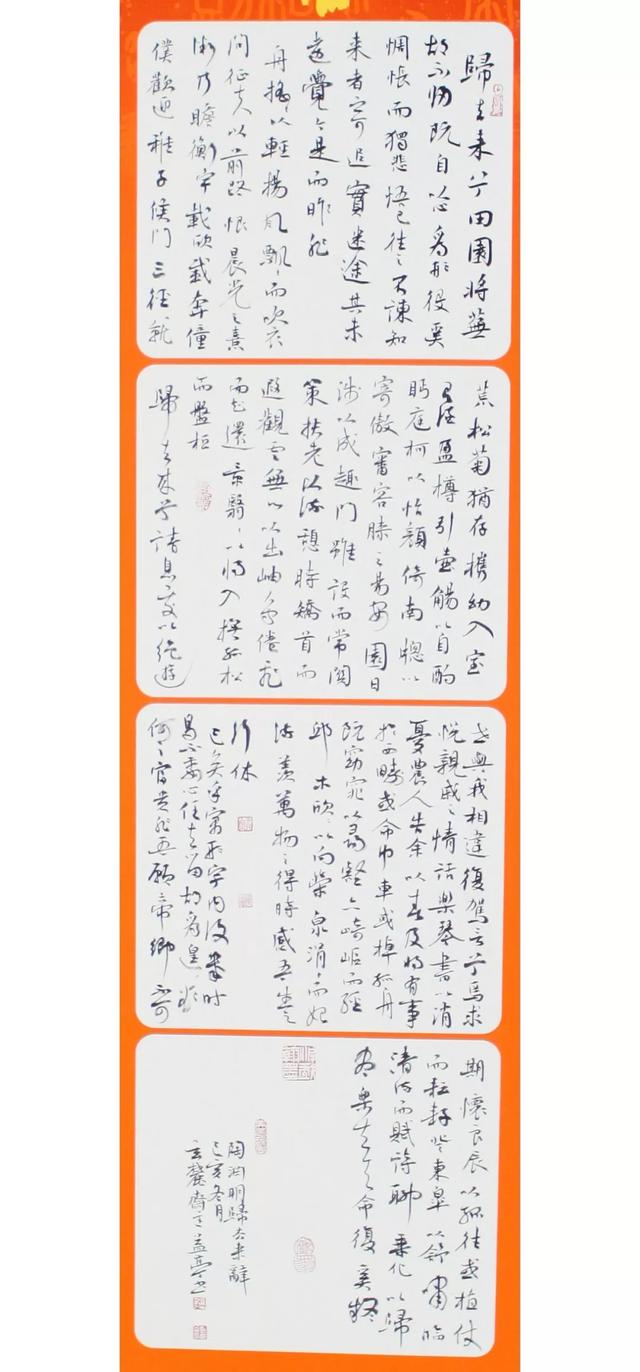 歸去来兮田園将蕪
胡不归既自以心爲形役奚
惆悵而獨悲悟已往之不諫知
来者之可追實迷途其未
遠覺今是而昨非
舟摇々以輕揚風飄々而吹衣
问征夫以前路恨晨光之熹
微乃瞻衡宇載欣載奔僮
僕歡迎稚子候門三徑就
荒松菊猶存攜幼入室
有酒盈樽引壺觴以自酌
眄庭柯以怡顔倚南牕以
寄傲審容膝之易安園日
涉以成趣門雖設而常関
策扶老以流憩時矯首而
遐觀雲無心以出岫鳥倦飛
而知還景翳々以将入撫孤松
而盤桓
歸去来兮請息交以绝遊
世與我相違復駕言兮焉求
悦親戚之情話樂琴書以消
憂農人告余以春及将有事
於西疇或命巾車或棹孤舟
既窈窕以尋壑亦崎嶇而經
邱木欣々以向榮泉涓々而始
流羡萬物之得時感吾生之
行休
已矣乎寓形宇内復幾时
曷不委心任去留胡爲遑々欲
何之富贵非吾願帝鄉不可
期懷良辰以孤往或植杖
而耘耔登東皋以舒嘯臨
清流而賦詩聊乘化以歸
盡樂夫天命復奚疑
陶渊明歸去来辭
己亥冬月
玄麓齋主益亭书